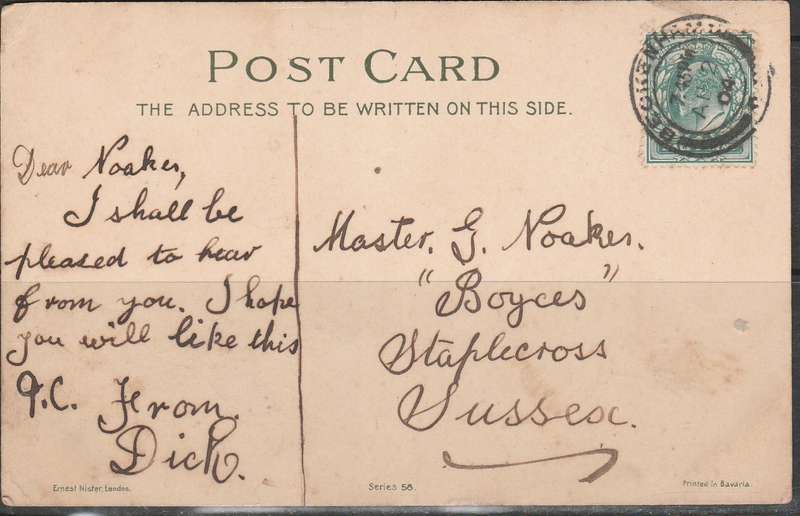 POST CARD
THE ADDRESS TO BE WRITTEN ON THIS SIDE.
BECKENHAM
AU 2
04
Dear Noakes,
I shall be
pleased to hear
from you. I hope
you will like this
P.C. From
Dick.
Master. G. Noakes.
"Boyces"
Staplecross
Sussex.
Ernest Nister, London.
Series 58.
Printed in Bavaria.